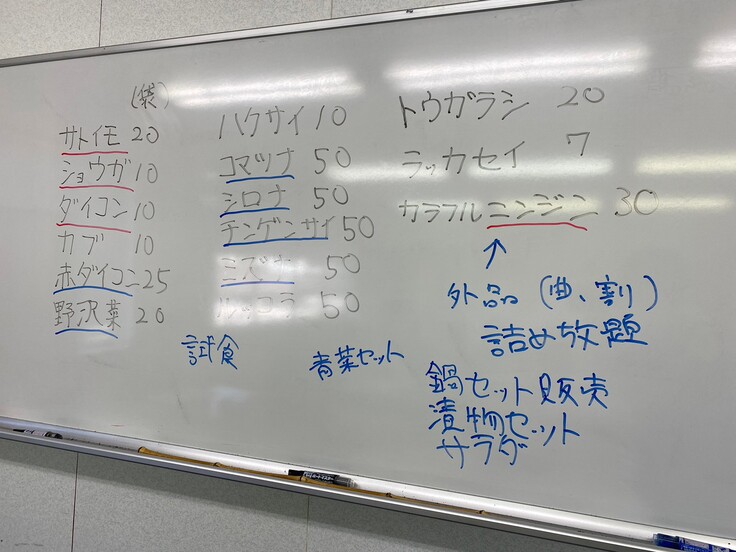 (袋)
サトイモ 20
ショウガ 10
ダイコン 10
カブ 10
赤ダイコン 25
野沢菜 20
ハクサイ 10
コマツナ 50
シロナ 50
チンゲンサイ 50
ミズナ 50
ルッコラ 50
トウガラシ 20
ラッカセイ 7
カラフルニンジン 30
↑
外品 (曲、割り)
詰め放題
試食
青菜セット
鍋セット販売
漬物セット
サラダ